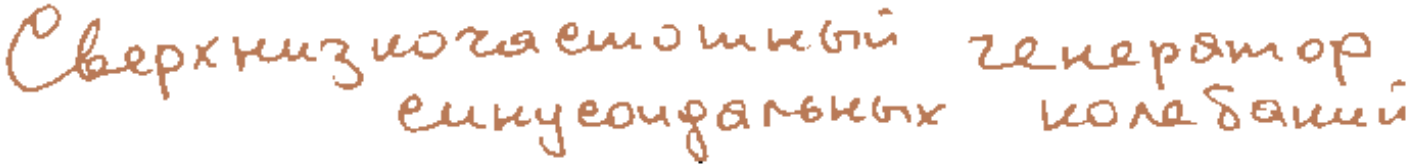 Сверхнизкочастотный генератор
синусоидальных колебаний